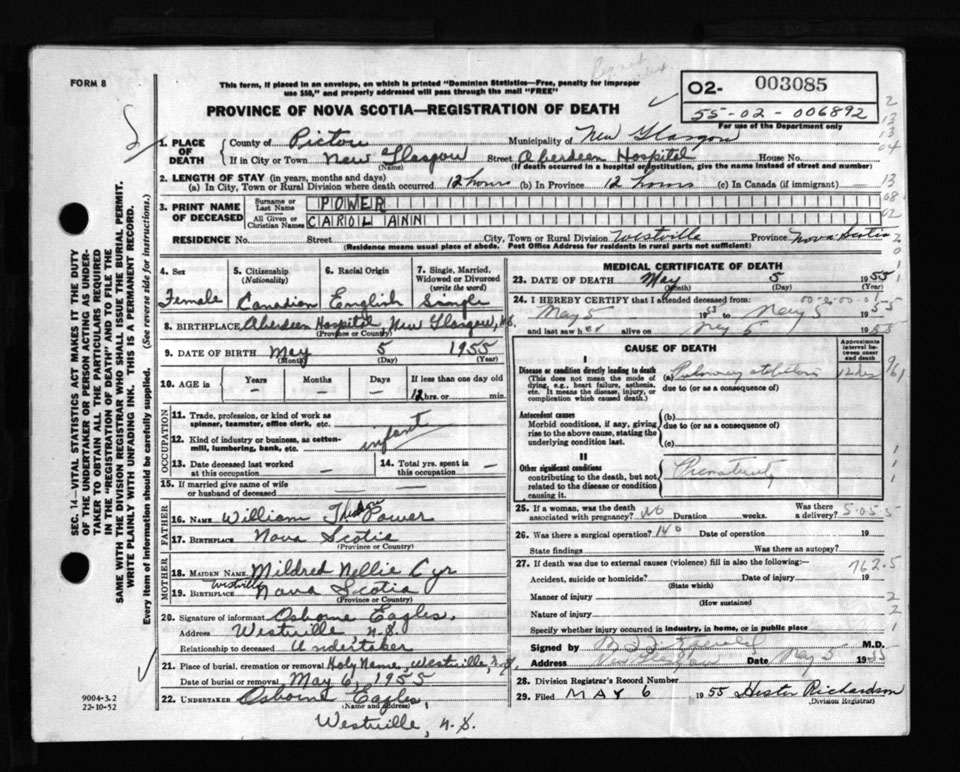 FORM 8
This form, if placed in an envelope, on which is printed "Dominion Statistics—Free, penalty for improper
use $50," and properly addressed will pass through the mail "FREE"
02- 003085
55-02-006892
For use of the Department only
PROVINCE OF NOVA SCOTIA—REGISTRATION OF DEATH
1. PLACE OF DEATH
County of Pictou Municipality of New Glasgow
If in City or Town New Glasgow (Name) Street Aberdeen Hospital House No.
(If death occurred in a hospital or institution, give the name instead of street and number)
2. LENGTH OF STAY (in years, months and days)
(a) In City, Town or Rural Division where death occurred 12 hours (b) In Province 12 hours (c) In Canada (if immigrant)
3. PRINT NAME OF DECEASED
Surname or Last Name POWER
All Given or Christian Names CAROL ANN
RESIDENCE No. Street City, Town or Rural Division Westville Province Nova Scotia
(Residence means usual place of abode. Post Office Address for residents in rural parts not sufficient)
4. Sex Female
5. Citizenship (Nationality) Canadian
6. Racial Origin English
7. Single, Married, Widowed or Divorced (write the word) Single
8. BIRTHPLACE Aberdeen Hospital, New Glasgow, N.S.
(Province or Country)
9. DATE OF BIRTH May (Month) 5 (Day) 1955 (Year)
10. AGE in Years — Months Days If less than one day old
12 hrs. or min.
OCCUPATION
11. Trade, profession, or kind of work as
spinner, teamster, office clerk, etc.
12. Kind of industry or business, as cotton-
mill, lumbering, bank, etc.
infant
13. Date deceased last worked
at this occupation —
14. Total yrs. spent in
this occupation —
15. If married give name of wife
or husband of deceased
FATHER
16. NAME William Power
17. BIRTHPLACE Nova Scotia
(Province or Country)
MOTHER
18. MAIDEN NAME Mildred Nellie Cyr
19. BIRTHPLACE Westville Nova Scotia
(Province or Country)
20. Signature of informant Osborne Eagles,
Address Westville, N.S.
Relationship to deceased Undertaker
21. Place of burial, cremation or removal Holy Name, Westville, N.S.
Date of burial or removal May 6, 1955
22. UNDERTAKER Osborne Eagles,
(Name and Address)
Westville, N.S.
MEDICAL CERTIFICATE OF DEATH
23. DATE OF DEATH May (Month) 5 (Day) 1955
24. I HEREBY CERTIFY that I attended deceased from
May 5 1955 to May 5 1955
and last saw her alive on May 5 1955
CAUSE OF DEATH
Approximate interval between onset and death
I
Disease or condition directly leading to death
(This does not mean the mode of
dying, e.g., heart failure, asthenia,
etc. It means the disease, injury, or
complication which caused death.)
(a) Pulmonary
due to (or as a consequence of)
Antecedent causes
Morbid conditions, if any, giving
rise to the above cause, stating the
underlying condition last.
(b)
due to (or as a consequence of)
(c)
II
Other significant conditions
contributing to the death, but not
related to the disease or condition
causing it.
Prematurity
25. If a woman, was the death
associated with pregnancy? No Duration weeks. Was there a delivery?
26. Was there a surgical operation? No Date of operation 19
State findings Was there an autopsy?
27. If death was due to external causes (violence) fill in also the following:—
762.5
Accident, suicide or homicide? (State which) Date of injury 19
Manner of injury
(How sustained
Nature of injury
Specify whether injury occurred in industry, in home, or in public place
Signed by M.D.
Address New Glasgow Date May 5 1955
28. Division Registrar's Record Number
29. Filed MAY 6 1955 Hester Richardson
(Division Registrar)
SEC. 14—VITAL STATISTICS ACT MAKES IT THE DUTY
OF THE UNDERTAKER OR PERSON ACTING AS UNDER-
TAKER TO OBTAIN ALL THE PARTICULARS REQUIRED
IN THE "REGISTRATION OF DEATH" AND TO FILE THE
SAME WITH THE DIVISION REGISTRAR WHO SHALL ISSUE THE BURIAL PERMIT.
WRITE PLAINLY WITH UNFADING INK. THIS IS A PERMANENT RECORD.
Every item of information should be carefully supplied. (See reverse side for instructions.)
9004-3.2
22-10-52